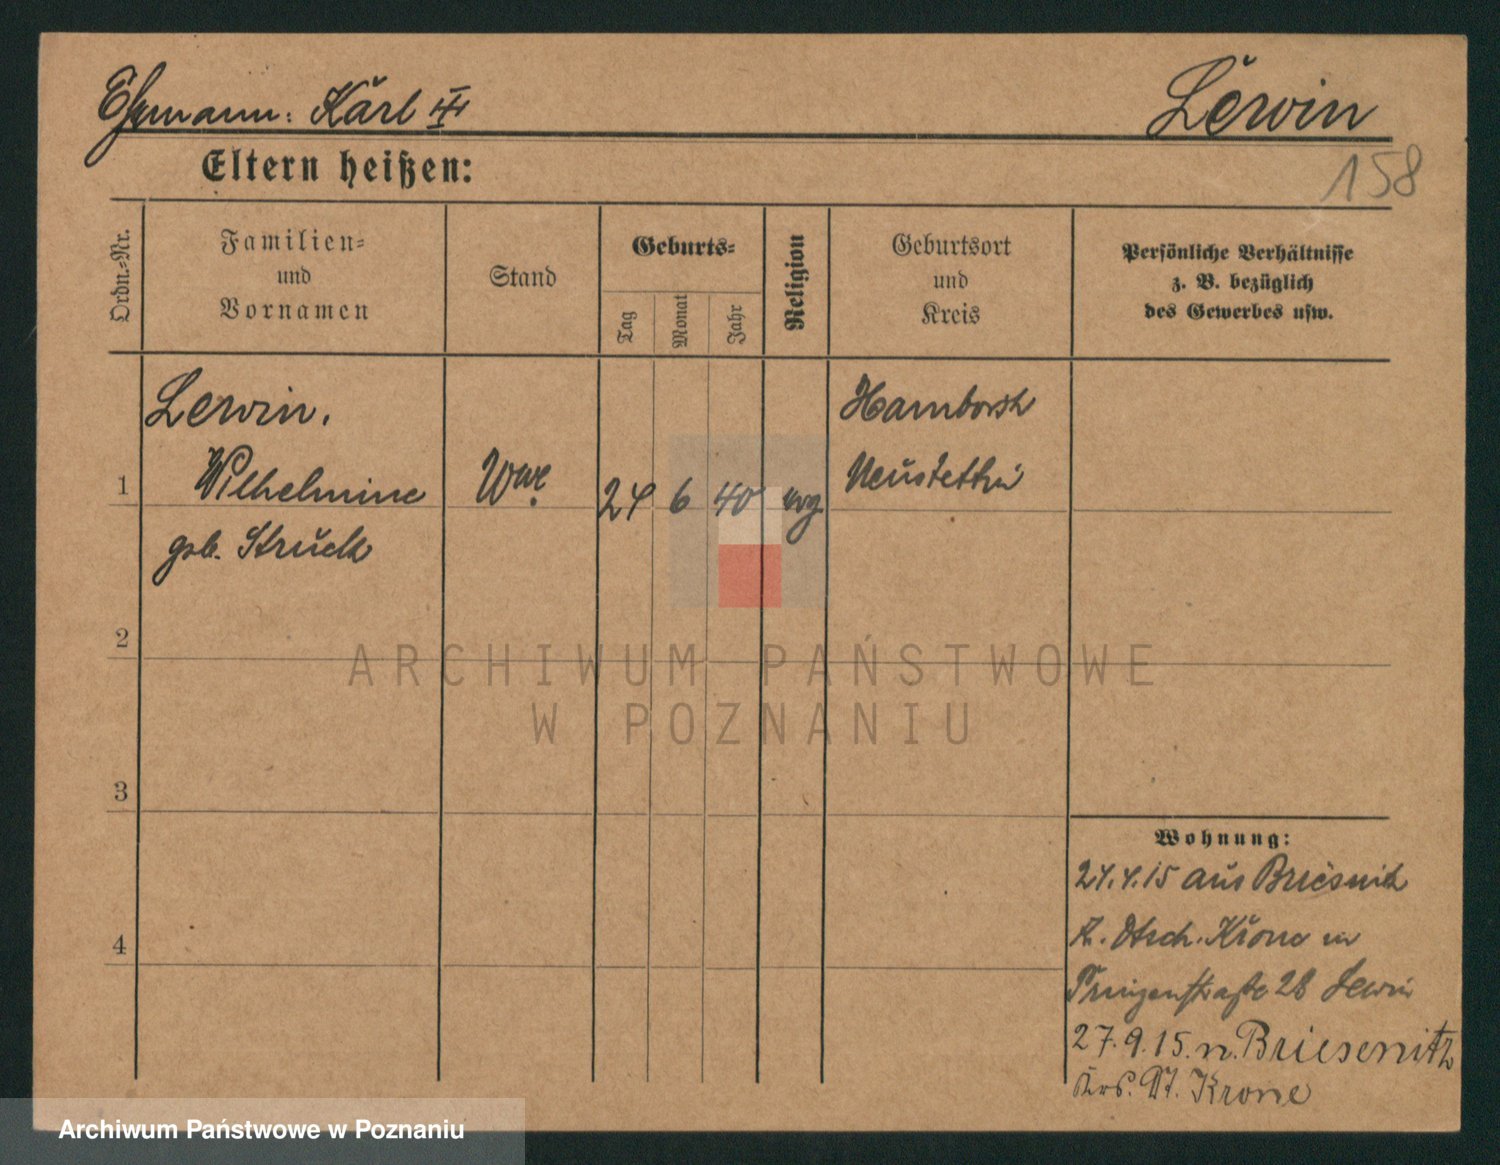 Ehemann: Karl III
Lewin
158
Eltern heißen:
Ordn.-Nr.
Familien-
und
Vornamen
Stand
Geburts-
Tag
Monat
Jahr
Religion
Geburtsort
und
Kreis
Persönliche Verhältnisse
z. B. bezüglich
des Gewerbes usw.
Lewin,
1 Wilhelmine Wwe. 24 6 40 evg.
geb. Struck
Neustettin
2
3
4
Wohnung:
24.4.15 aus Briesnitz
K. Dtsch. Krone
28 Lewin
27.9.15. n. Briesenitz
Krs. Dt. Krone
ARCHIWUM PAŃSTWOWE
W POZNANIU
Archiwum Państwowe w Poznaniu